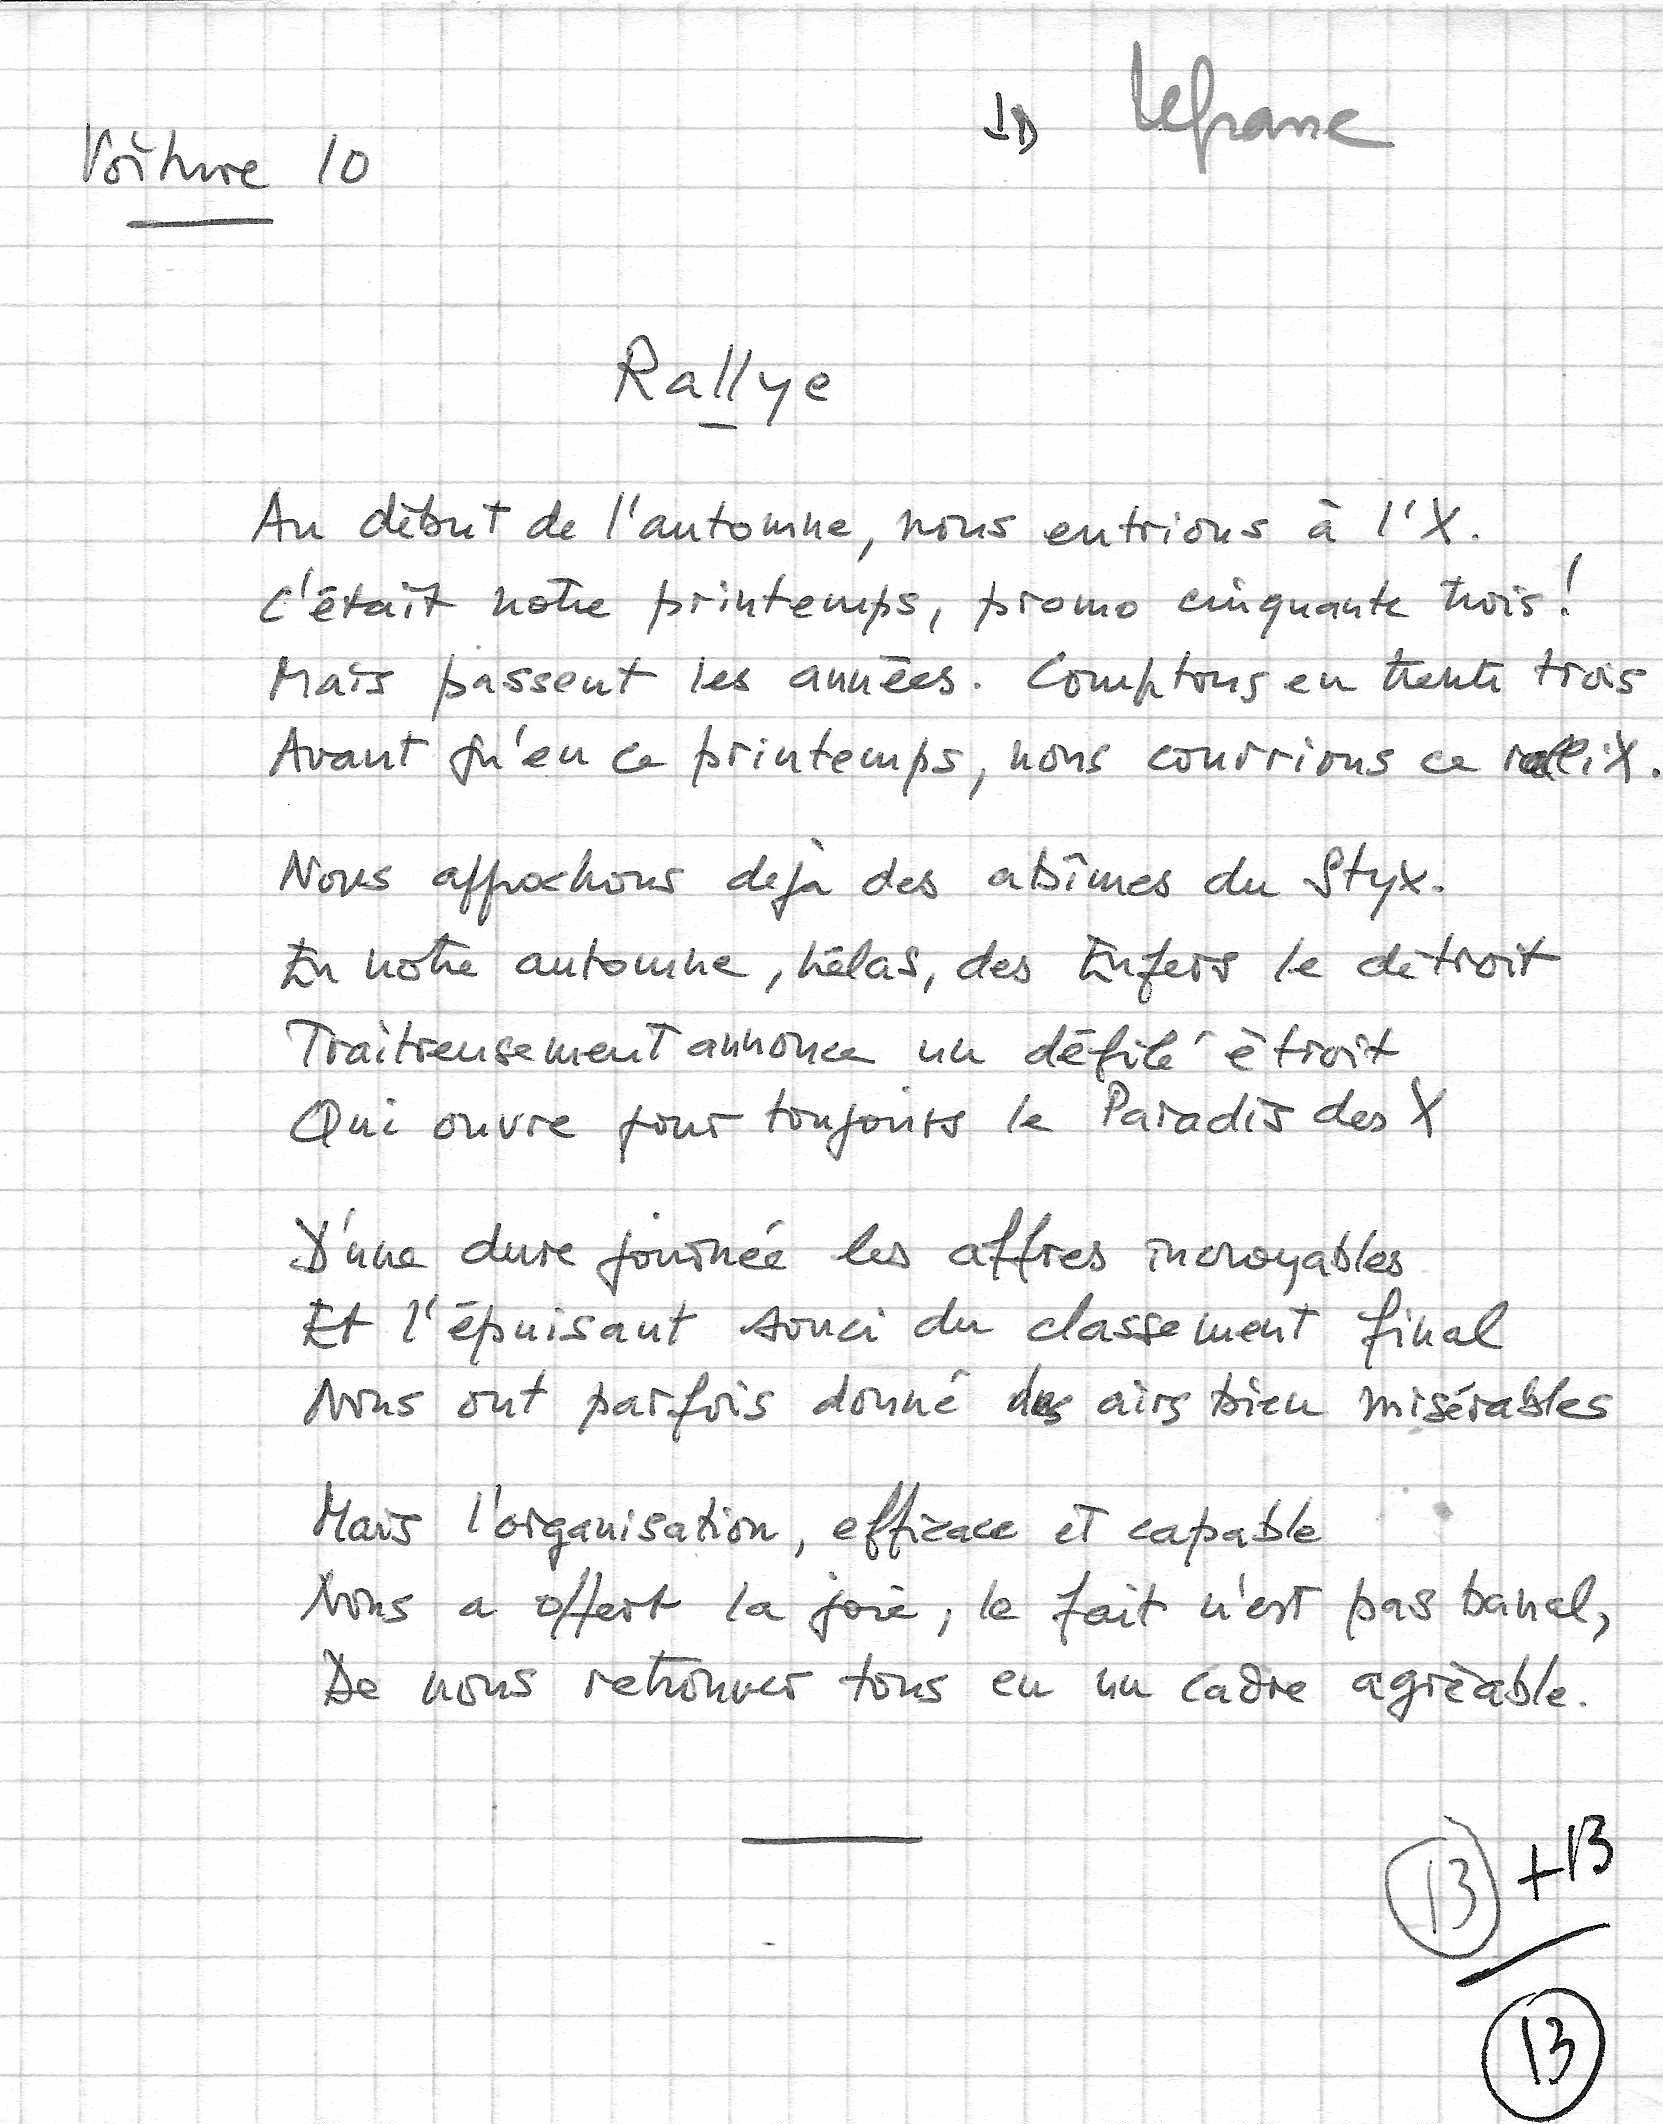 JD Lefranc
Voiture 10
Rallye
Au début de l'automne, nous entrions à l'X.
C'était notre printemps, promo cinquante trois!
Mais passent les années. Comptons en trente trois
Avant qu'en ce printemps, nous courrions ce rallix.
Nous approchons déjà des abîmes du Styx.
En notre automne, hélas, des Enfers le détroit
Traitreusement annonce un défilé étroit
Qui ouvre pour toujours le Paradis des X
D'une dure journée les affres incroyables
Et l'épuisant souci du classement final
Nous ont parfois donné des airs bien misérables
Mais l'organisation, efficace et capable
Nous a offert la joie, le fait n'est pas banal,
De nous retrouver tous en un cadre agréable.
13 +13
13